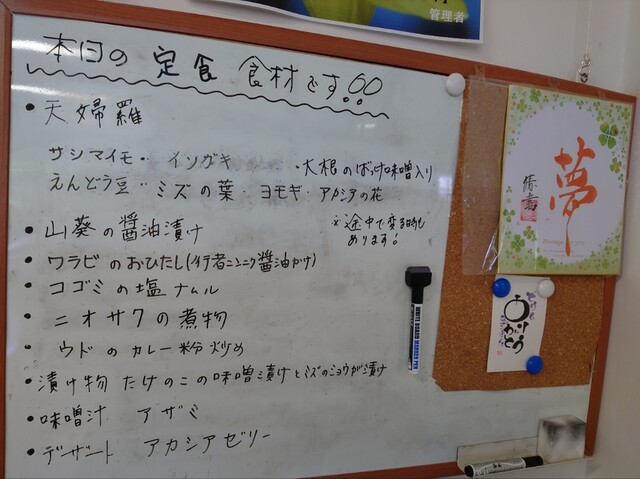 管理者
本日の 定食 食材です!!
• 天婦羅
サシマイモ・ イソガキ ・大根のばっけ味噌入り
えんどう豆・ミズの葉・ヨモギ・アカシアの花
• 山葵の醤油漬け
※途中で変る時も
あります!
• ワラビのおひたし(行者ニンニク醤油かけ)
• コゴミの塩ナムル
• ニオサクの煮物
• ウドのカレー粉炒め
• 漬け物 たけのこの味噌漬けとミズのショウガ漬け
• 味噌汁 アザミ
• デザート アカシアゼリー
夢
ありがとう
WHITE BOARD MARKER PEN